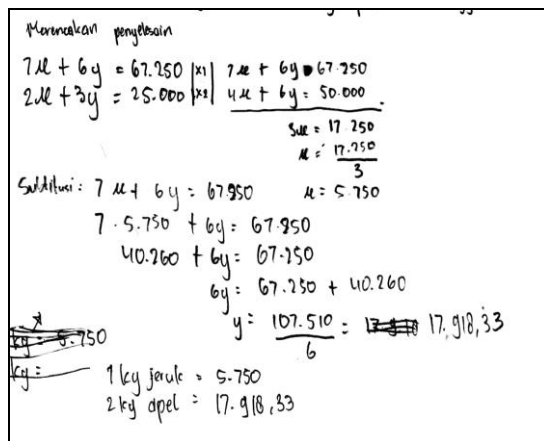 Merencakan penyelesain
7x + 6y = 67.250 |x1| 7x + 6y = 67.250
2x + 3y = 25.000 |x2| 4x + 6y = 50.000
3x = 17.250
x = 17.250
3
Subtitusi : 7x + 6y = 67.250 x = 5.750
7 . 5.750 + 6y = 67.250
40.260 + 6y = 67.250
6y = 67.250 + 40.260
y = 107.510 = 17.918,33
6
kg = 5.750
kg =
1 kg jeruk = 5.750
2 kg apel = 17.918,33